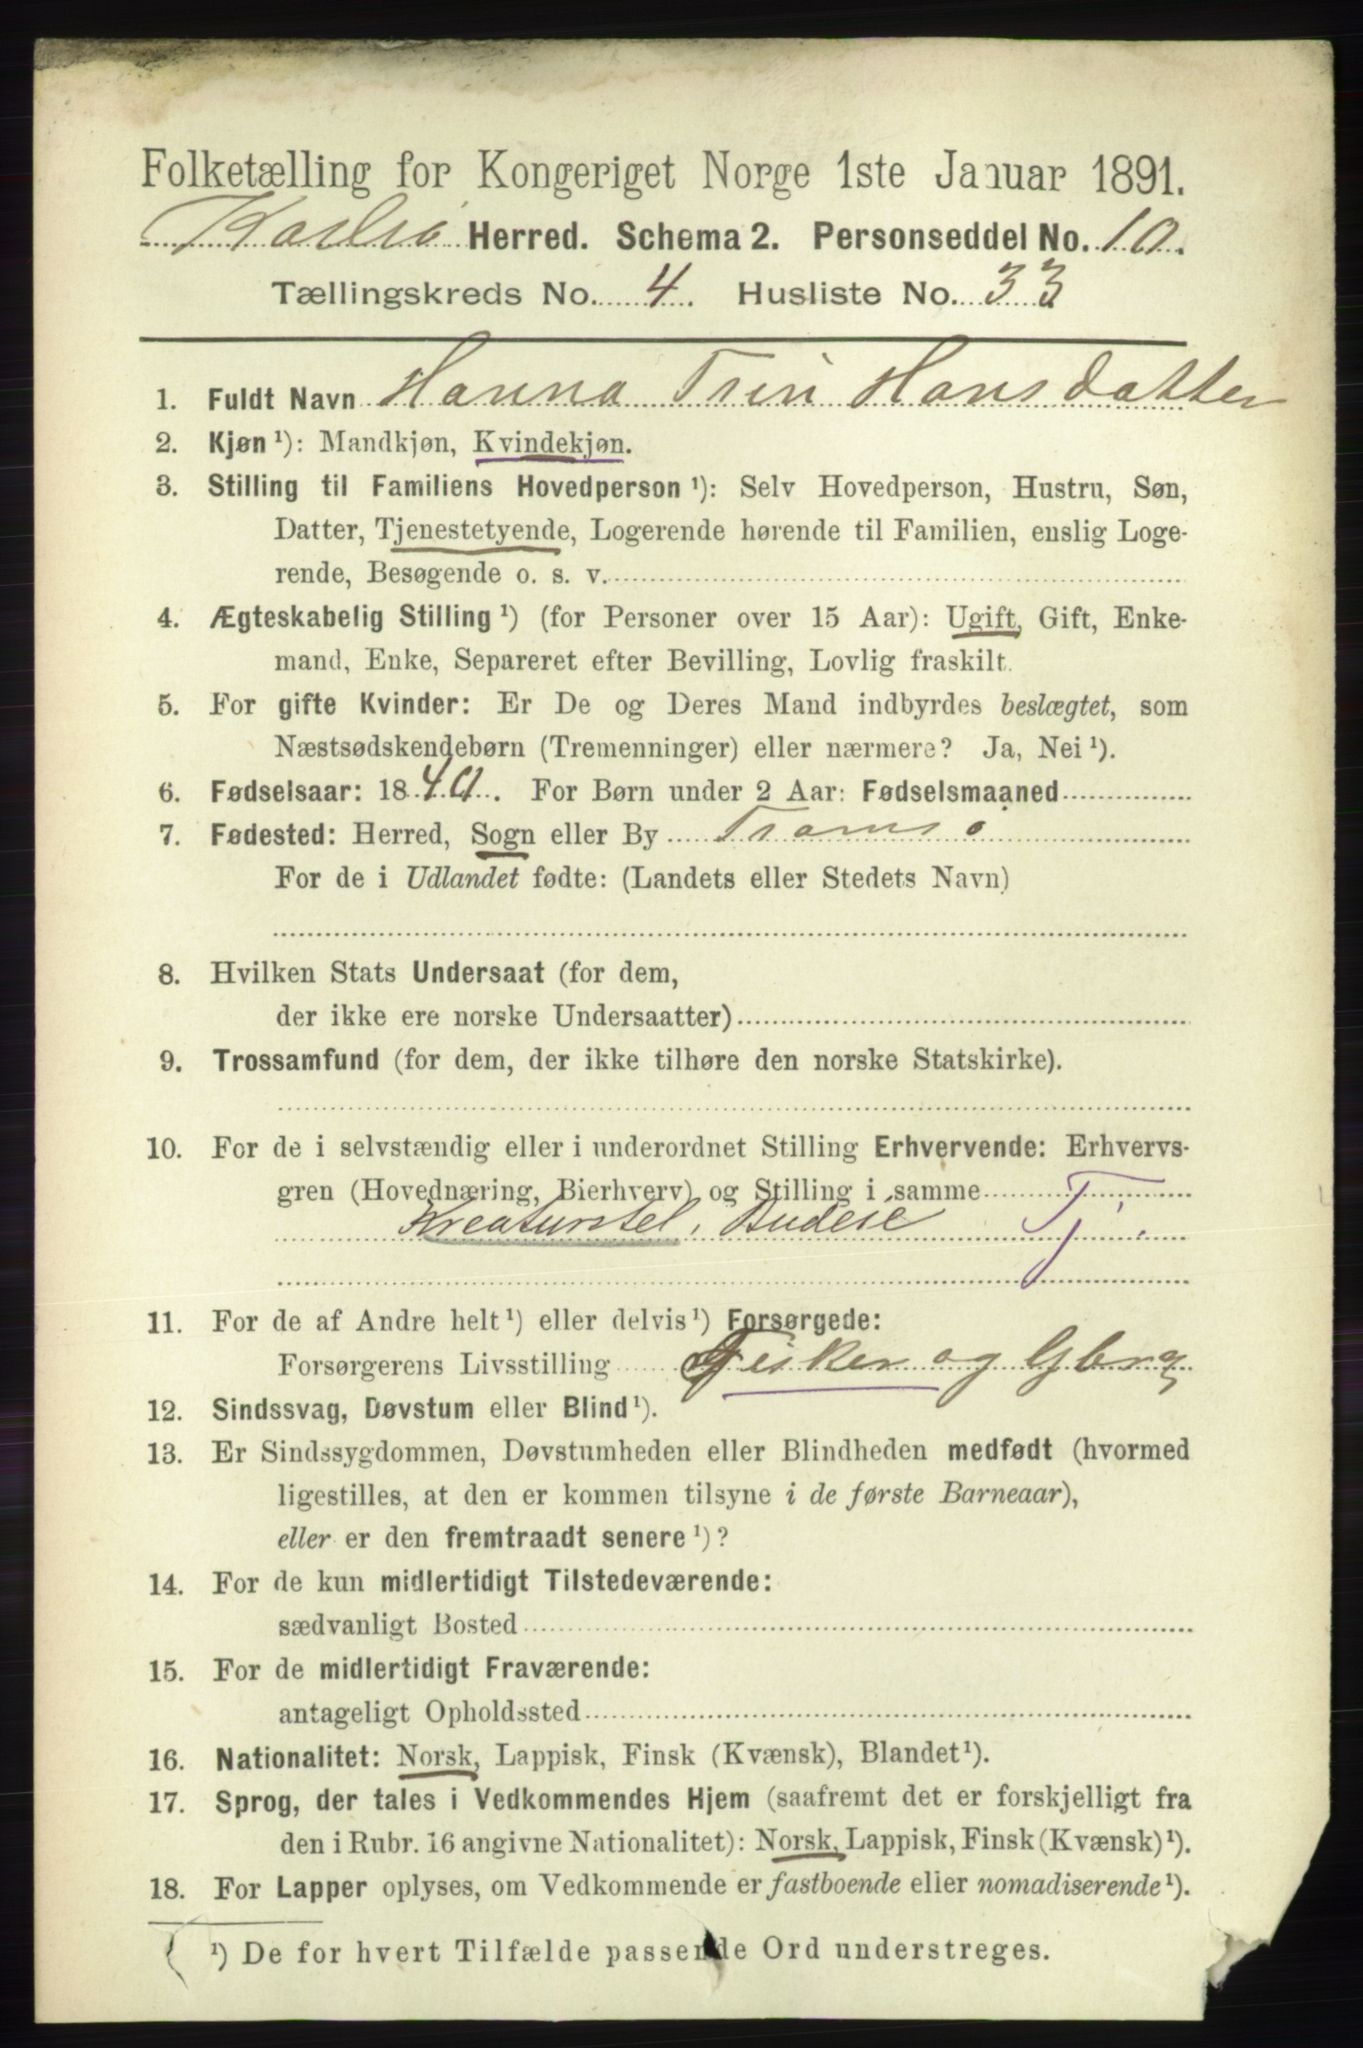 Folketælling for Kongeriget Norge 1ste Januar 1891.
Karlsø Herred. Schema 2. Personseddel No. 10.
Tællingskreds No. 4. Husliste No. 33
1. Fuldt Navn Hanna Trin Hansdatter
2. Kjøn ¹): Mandkjøn, Kvindekjøn.
3. Stilling til Familiens Hovedperson ¹): Selv Hovedperson, Hustru, Søn,
Datter, Tjenestetyende, Logerende hørende til Familien, enslig Loge-
rende, Besøgende o. s. v.
4. Ægteskabelig Stilling ¹) (for Personer over 15 Aar): Ugift, Gift, Enke-
mand, Enke, Separeret efter Bevilling, Lovlig fraskilt.
5. For gifte Kvinder: Er De og Deres Mand indbyrdes beslægtet, som
Næstsødskendebørn (Tremenninger) eller nærmere? Ja, Nei ¹).
6. Fødselsaar: 1840. For Børn under 2 Aar: Fødselsmaaned
7. Fødested: Herred, Sogn eller By Tromsø
For de i Udlandet fødte: (Landets eller Stedets Navn)
8. Hvilken Stats Undersaat (for dem,
der ikke ere norske Undersaatter)
9. Trossamfund (for dem, der ikke tilhøre den norske Statskirke).
10. For de i selvstændig eller i underordnet Stilling Erhvervende: Erhvervs-
gren (Hovednæring, Bierhverv) og Stilling i samme
Kreaturstel, Budeie Tj.
11. For de af Andre helt ¹) eller delvis ¹) Forsørgede:
Forsørgerens Livsstilling Fisker og Gbrg
12. Sindssvag, Døvstum eller Blind ¹).
13. Er Sindssygdommen, Døvstumheden eller Blindheden medfødt (hvormed
ligestilles, at den er kommen tilsyne i de første Barneaar),
eller er den fremtraadt senere ¹)?
14. For de kun midlertidigt Tilstedeværende:
sædvanligt Bosted
15. For de midlertidigt Fraværende:
antageligt Opholdssted
16. Nationalitet: Norsk, Lappisk, Finsk (Kvænsk), Blandet ¹).
17. Sprog, der tales i Vedkommendes Hjem (saafremt det er forskjelligt fra
den i Rubr. 16 angivne Nationalitet): Norsk, Lappisk, Finsk (Kvænsk) ¹).
18. For Lapper oplyses, om Vedkommende er fastboende eller nomadiserende ¹).
¹) De for hvert Tilfælde passende Ord understreges.